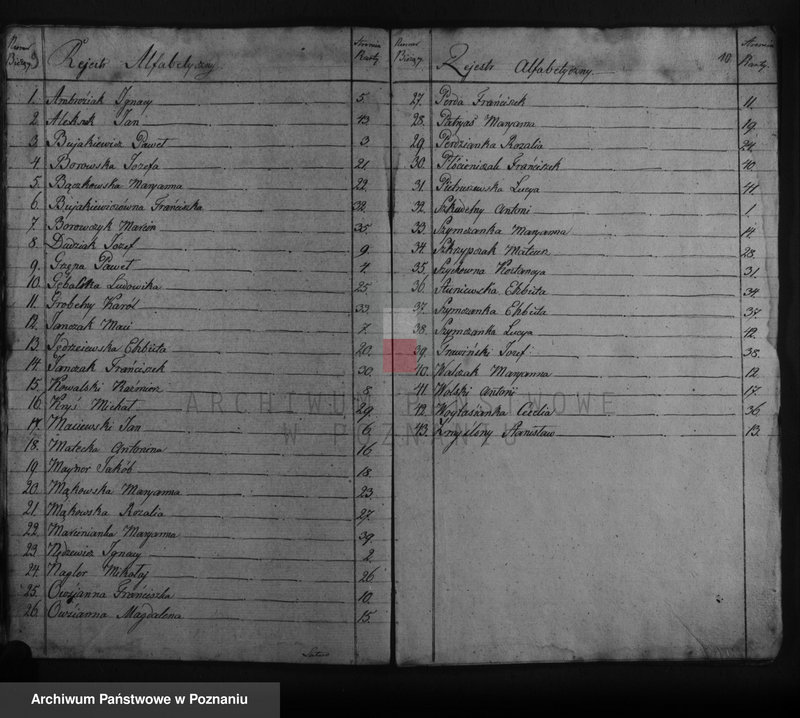 Numer
Bieżąc.
9
Rejestr Alfabetyczny
Stronica
Karty
1. Ambroziak Ignacy 5.
2. Jan 43
3. Bujakiewicz Paweł 3.
4. Borowska Jozefa 21
5. Bączkowska Maryanna 22.
6. Bujakiewiczowna Franciszka 32.
7. Borowczyk Marcin 35.
8. Dudziak Jozef 9.
9. Paweł 4.
10. Ludowika 25
11. Grobelny Karól 33
12. Janczak Maci 7.
13. Jędrzeiewska Elżbieta 20.
14. Janczak Franciszek 30.
15. Kowalski Kazmierz 8.
16. Kryś Michał 29.
17. Maciewski Jan 6.
18. Małecka Antonina 16.
19. Maynor Jakób 18.
20. Mąkowska Maryanna 23.
21. Mąkowska Rozalia 27.
22. Marcnianka Maryanna 39.
23. Nędzewicz Ignacy 2.
24. Nagler Mikołaj 26
25. Owzianna Franciszka 10.
26. Owzianna Magdalena 15.
Numer
Bieżąc.
Rejestr Alfabetyczny
10
Stronica
Karty
27. Perda Franciszek 11.
28. Patryas Maryanna 19.
29. Perdzianka Rozalia 24.
30. Płócieniczak Franciszek 40.
31. Pietruszewska Lucya 41.
32. Szkudelny Antoni 1.
33. Szymczanka Maryanna 14
34. Szkrzypczak Mateusz 28.
35. 31.
36. Elżbieta 34.
37. Szymczanka Elżbieta 37.
38. Szymczanka Lucya 42.
39. Jozef 38.
40. Walczak Maryanna 12.
41. Wolski Antoni 17.
42. Woytasianka Cecelia 36.
43. Zmyślony Stanisław 13.
ARCHIWUM PAŃSTWOWE
W POZNANIU
Archiwum Państwowe w Poznaniu